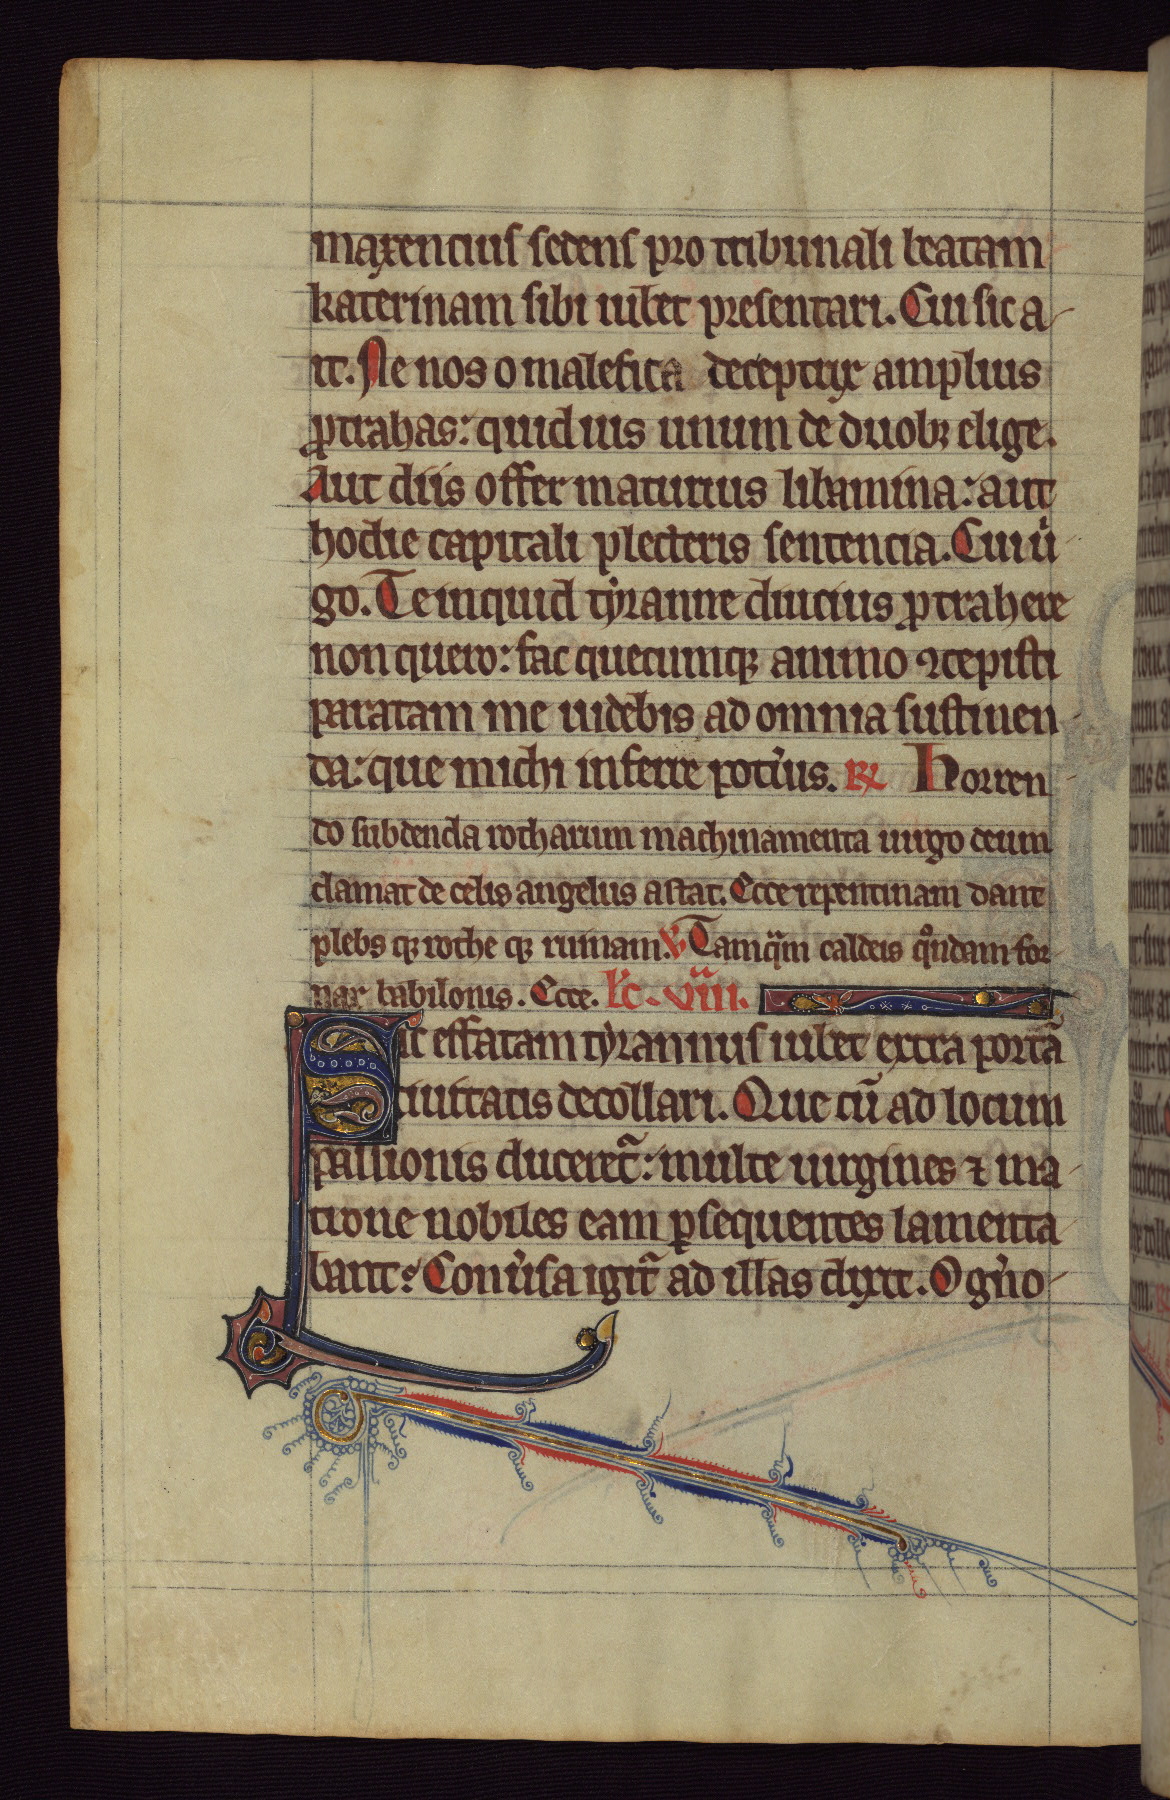 maxencius sedens pro tribunali beatam
katerinam sibi iubet presentari. Cui sic a
it. Ne nos o malefica deceptrix amplius
ꝓtrahas: quid uis unum de duobꝫ elige.
Aut diis offer maturius libamina: aut
hodie capitali plecteris sentencia. Cui uͥ
go. Te inquid tẏranne diucius ꝓtrahere
non quero: fac quecumqꝫ animo ꝯcepisti
paratam me uidebis ad omnia sustinen
da: que michi inferre potͥus. ℟ Horren
do subdenda rotharum machinamenta uirgo deum
clamat de celis angelus astat. Ecce repentinam dante
plebs qꝫ rothe qꝫ ruinam. ℣ Tamqͣm caldeis qͦndam for
nax babilonis. Ecce. lc̄. viii.
Sic effatam tẏrannus iubet extra portā
ciuitatis decollari. Que cū ad locum
passionis duceretᷣ: multe uirgines ⁊ ma
trone nobiles eam ꝑsequentes lamenta
bant᷒ Conu͛sa igitᷣ ad illas dixit. O gn͛o